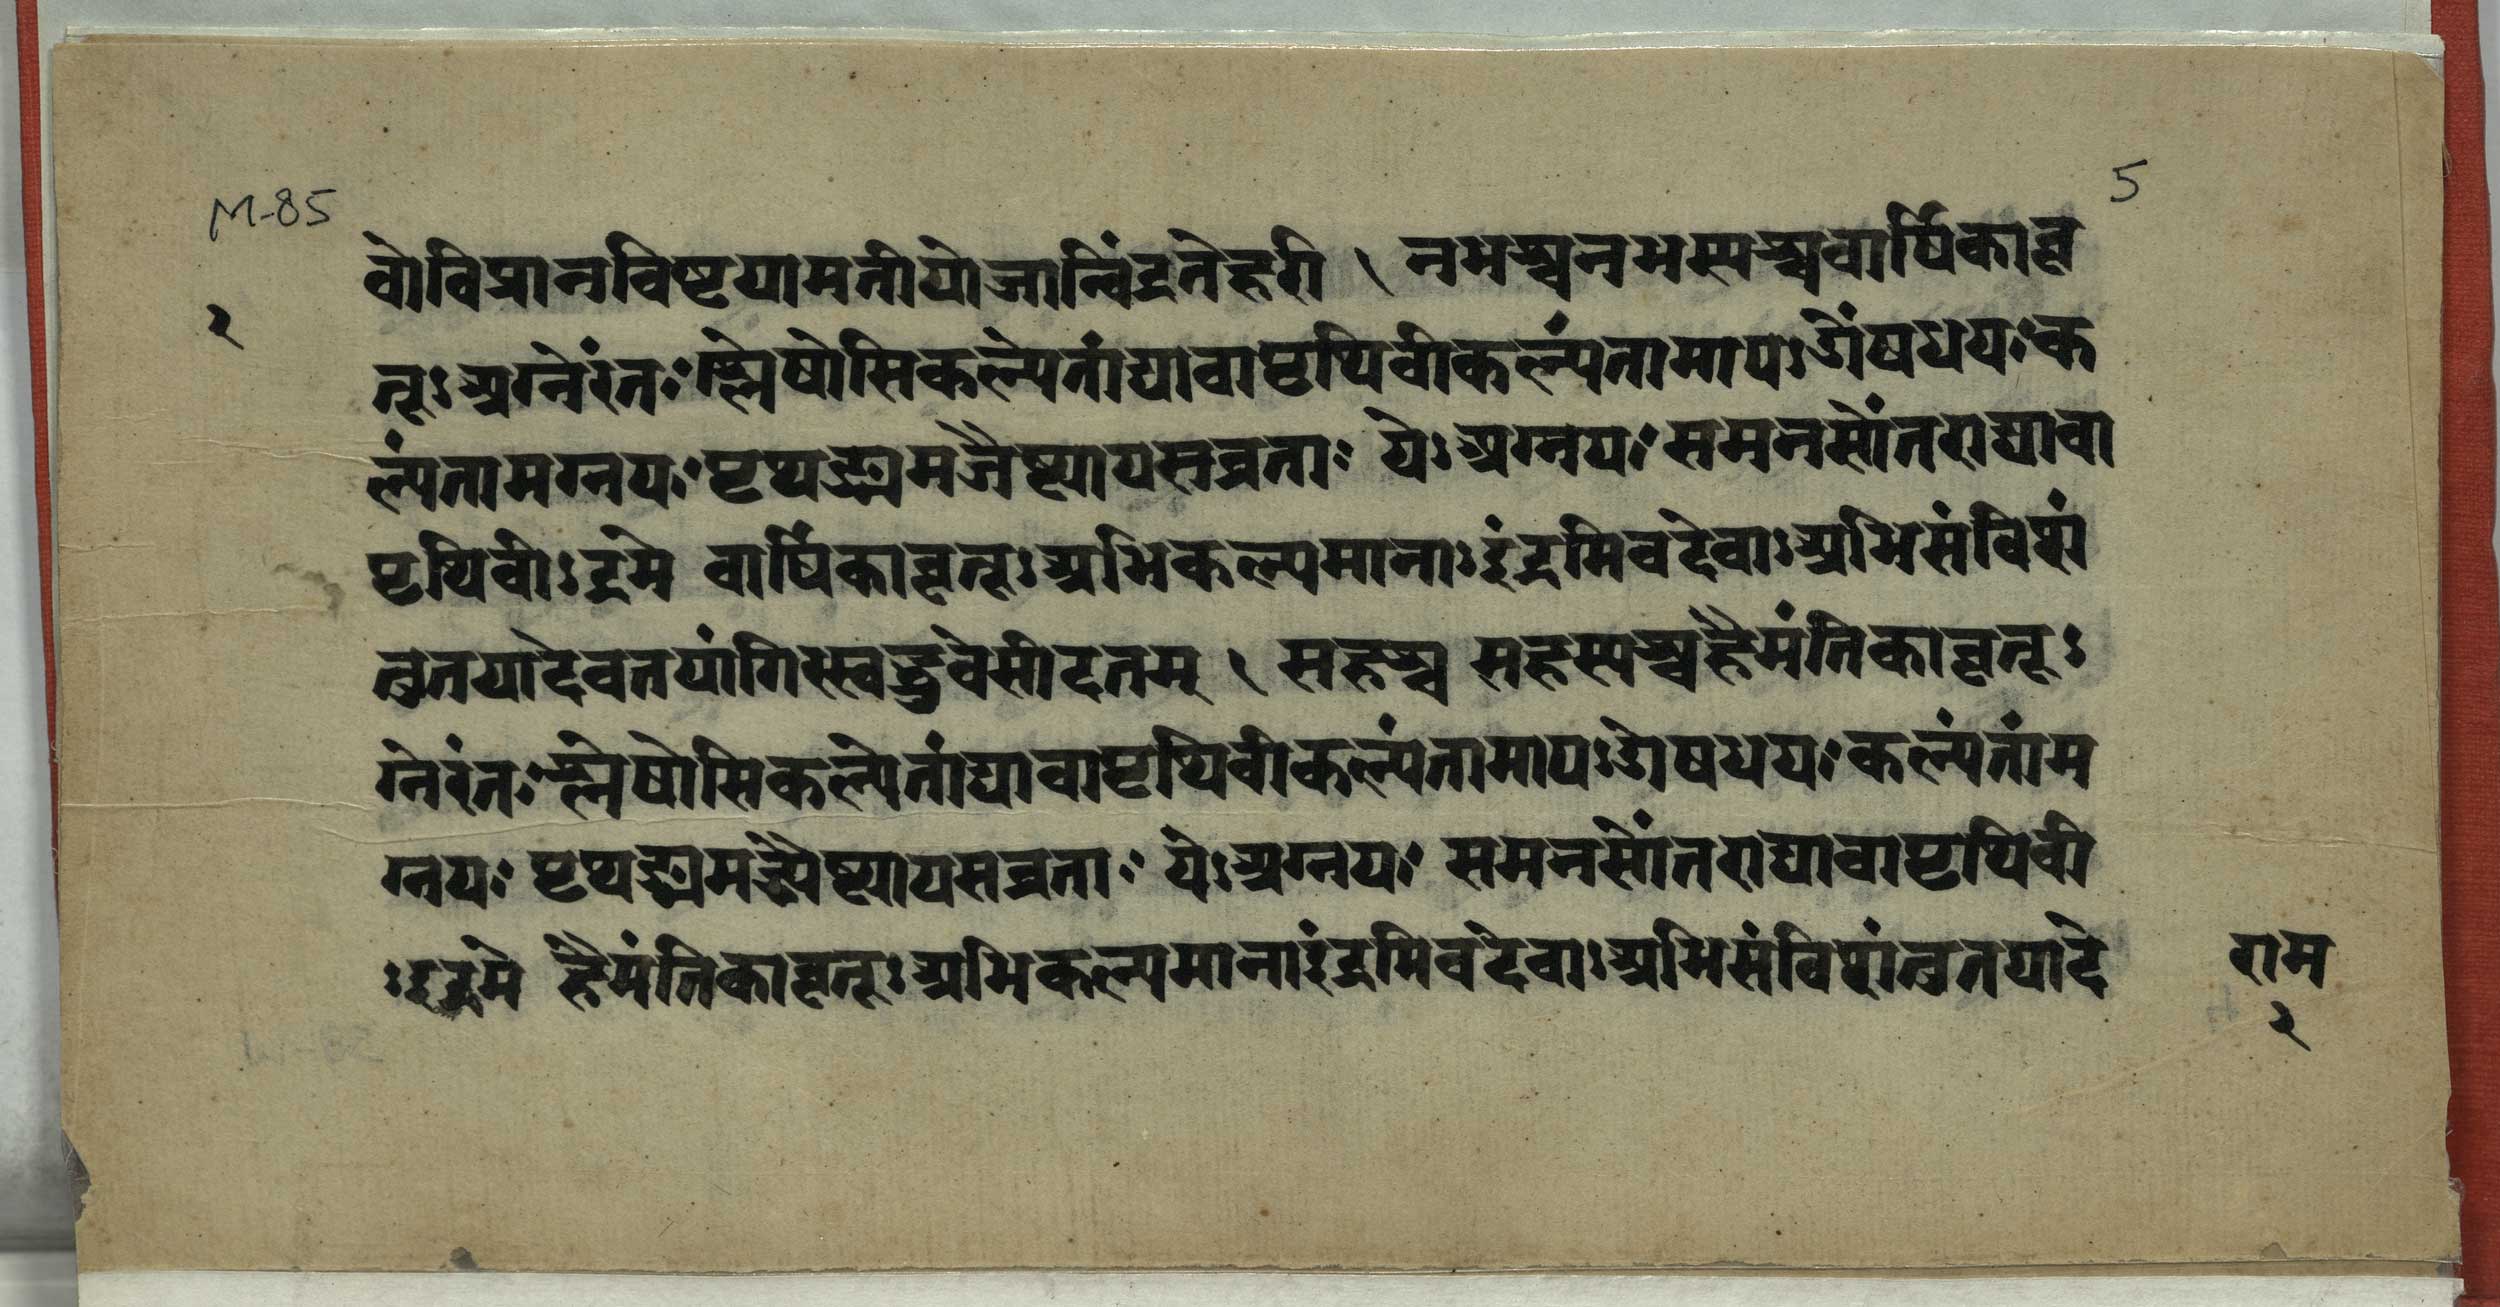 M-85
5
वोविप्रानविष्टयामतीयोजान्विंद्रतेहरी । नभश्चनभस्यश्चवार्षिकावृ
२
तूःअग्नेरंतःश्लेषोसिकल्पेतांद्यावापृथिवीकल्पंतामापःओंषधयःक
ल्पंतामग्नयःपृथङ्ममजैष्ट्यायसव्रताः येःअग्नयःसमनसोंतराद्यावा
पृथिवीःइमे वार्षिकावृतूःअभिकल्पमानाःइंद्रमिवदेवाःअभिसंविशं
तुतयादेवतयांगिरस्वद्ध्रुवेसीदतम् । सहश्च सहस्यश्चहैमंतिकावृतूः
ग्नेरंतःश्लेषोसिकल्पेतांद्यावापृथिवीकल्पंतामापःओषधयःकल्पंतांम
ग्नयः पृथङ्ममज्यैष्ट्यायसव्रताः येःअग्नयः समनसोंतराद्यावापृथिवी
ःइमे हैमंतिकावृतूःअभिकल्पमानाःइंद्रमिवदेवाःअभिसंविशंतुतयादे
राम
२